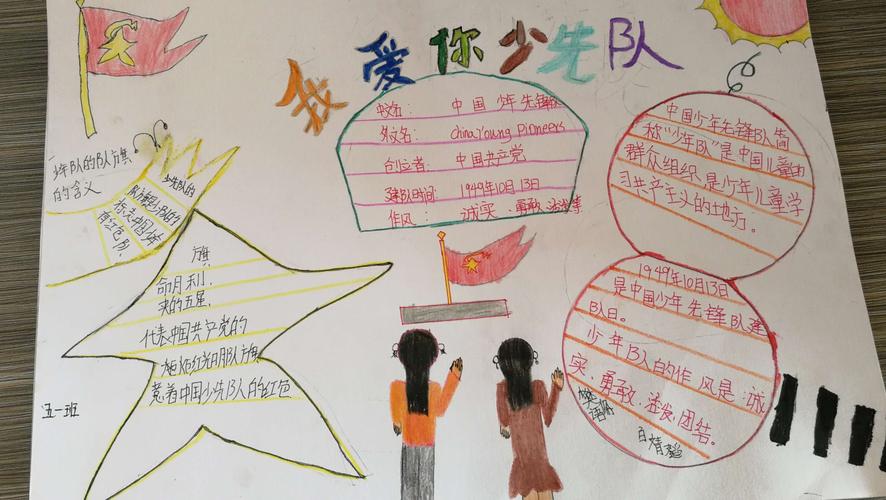 我爱你少先队
名： 中国少年先锋队
外文名： china Young pioneers
创立者： 中国共产党
建队时间： 1949年10月13日
作风： 诚实、勇敢、活泼等
中国少年先锋队简
称“少年队”是中国儿童的
群众组织是少年儿童学
习共产主义的地方。
少年队的队旗
的含义
少先队的
队旗是少队的
标志中国少年
旗
命月利、
夹的五星、
代表中国共产党的
红光明队旗
意着中国少先队的红色
1949年10月13日
是中国少年先锋队建
队日。
少年队的作风是:诚
实、勇敢、活泼、团结。
五一班